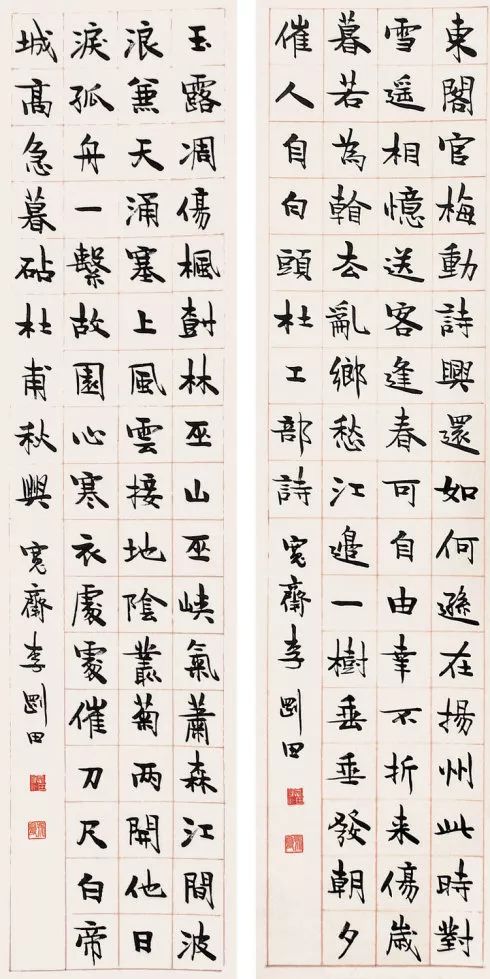 東閣官梅動詩興還如何遜在揚州此時對
雪遥相憶送客逢春可自由幸不折来傷歲
暮若為看去亂鄉愁江邊一樹垂垂發朝夕
催人自白頭杜工部詩 寬齋李剛田
玉露凋傷楓樹林巫山巫峽氣蕭森江間波
浪兼天涌塞上風雲接地陰叢菊兩開他日
淚孤舟一繫故園心寒衣處處催刀尺白帝
城高急暮砧杜甫秋興 寬齋李剛田